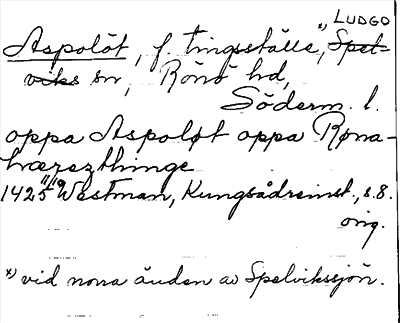 x) LUDGO
Aspolöt, f. tingsställe, Spel-
viks sn, Rönö hd,
Söderm. l.
oppa Aspoløt oppa Røna-
hærezthinge
1425 11/10 Westman, Kungsådreinst., s. 8.
orig.
x) vid norra änden av Spelvikssjön.